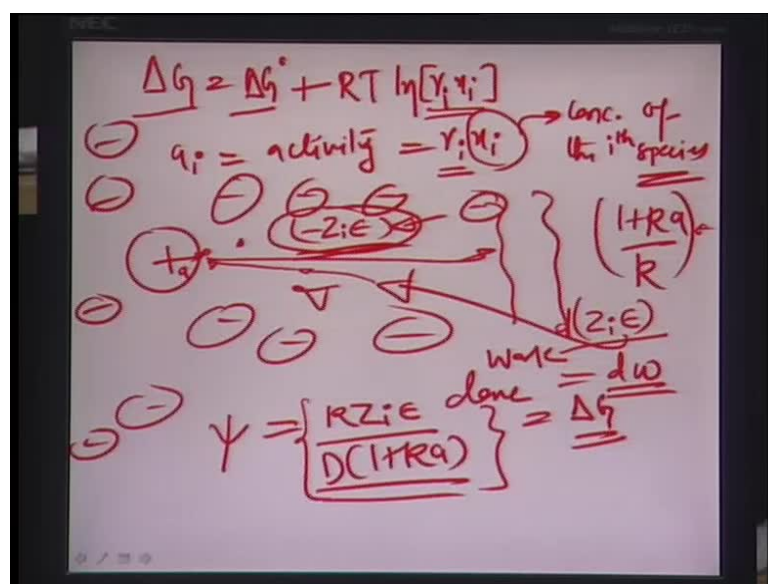 NEC
ΔG = ΔG° + RT ln[γi xi]
ai = activity = γi xi → Conc. of
the ith species
(-Ziϵ)
+a
(1+Ka / K)
d(Ziϵ)
Work done = dw
ψ = {KZiϵ / D(1+Ka)} = ΔG